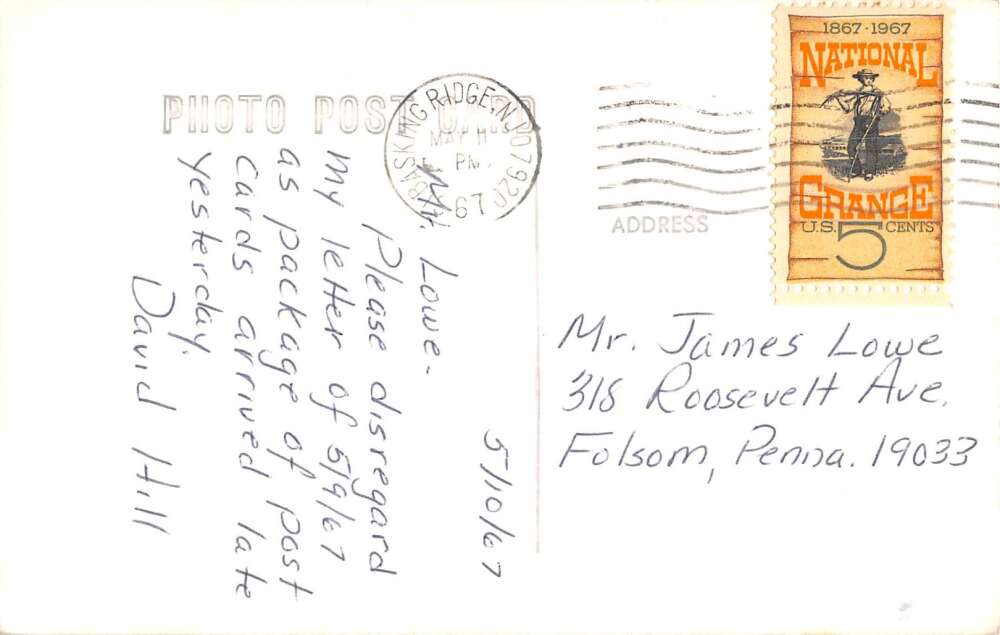 PHOTO POST CARD
BASKING RIDGE, NJ 07920
MAY 11
PM
67
1867·1967
NATIONAL
GRANGE
U.S. 5 CENTS
ADDRESS
5/10/67
Mr. Lowe-
Please disregard
my letter of 5/9/67
as package of post
cards arrived late
yesterday.
David Hill
Mr. James Lowe
318 Roosevelt Ave.
Folsom, Penna. 19033